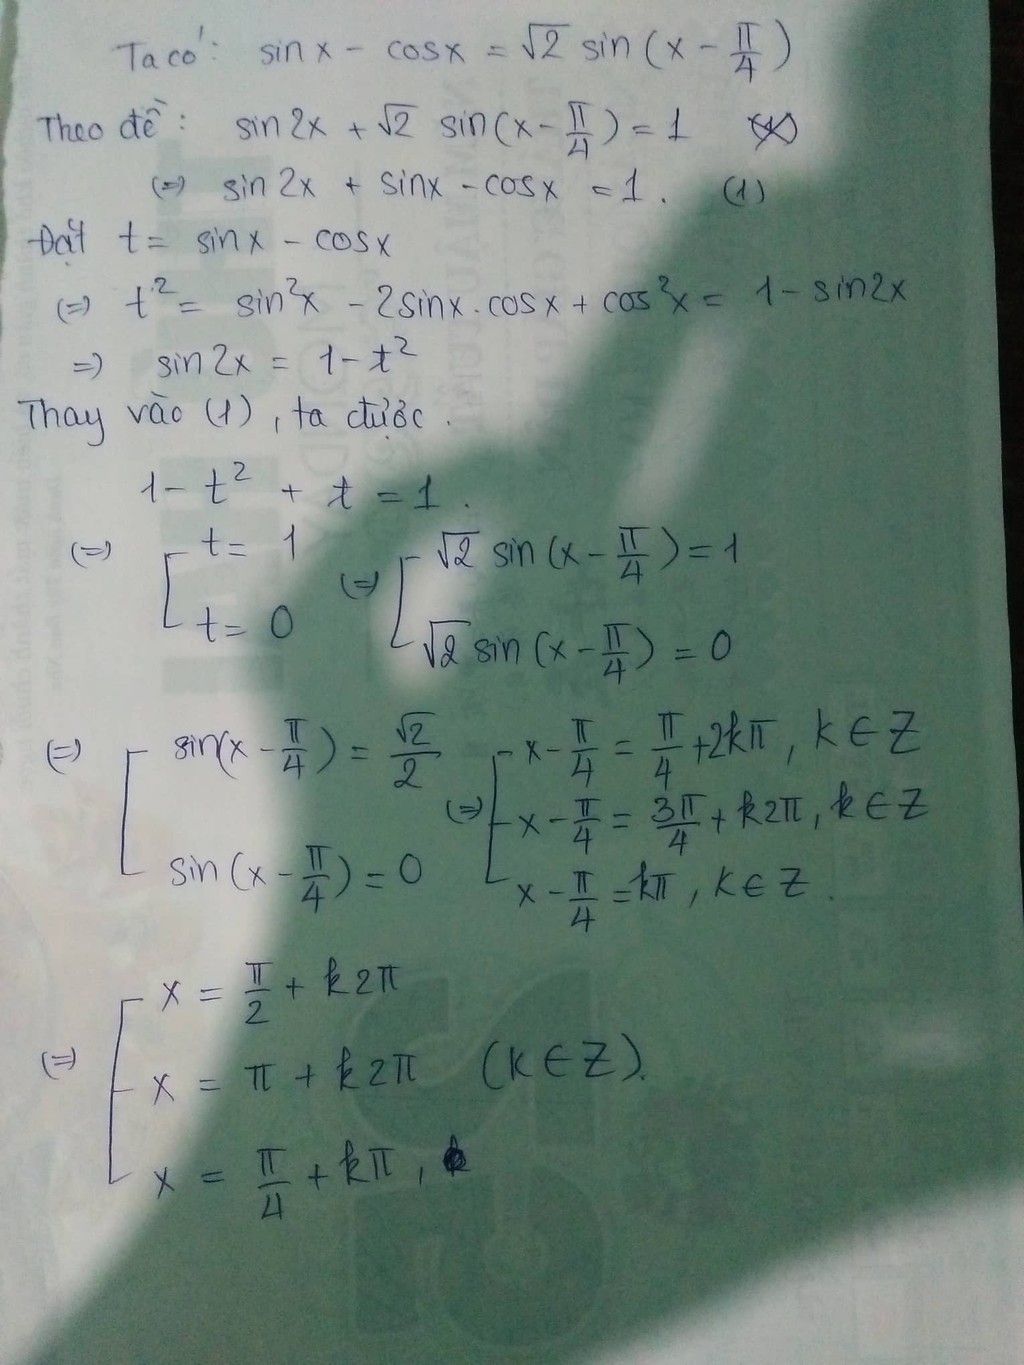 Ta có: sinx - cosx = √2 sin(x - π/4)
Theo đề: sin2x + √2 sin(x - π/4) = 1 (*)
(=) sin2x + sinx - cosx = 1. (1)
Đặt t = sinx - cosx
(=) t² = sin²x - 2sinx.cosx + cos²x = 1 - sin2x
=) sin2x = 1 - t²
Thay vào (1), ta được.
1 - t² + t = 1.
(=) [ t = 1 (=) [ √2 sin(x - π/4) = 1
t = 0 √2 sin(x - π/4) = 0
(=) [ sin(x - π/4) = √2/2 (=) [ x - π/4 = π/4 + 2kπ, k ∈ Z
x - π/4 = 3π/4 + k2π, k ∈ Z
sin(x - π/4) = 0 x - π/4 = kπ, k ∈ Z.
(=) [ x = π/2 + k2π
x = π + k2π (k ∈ Z).
x = π/4 + kπ,